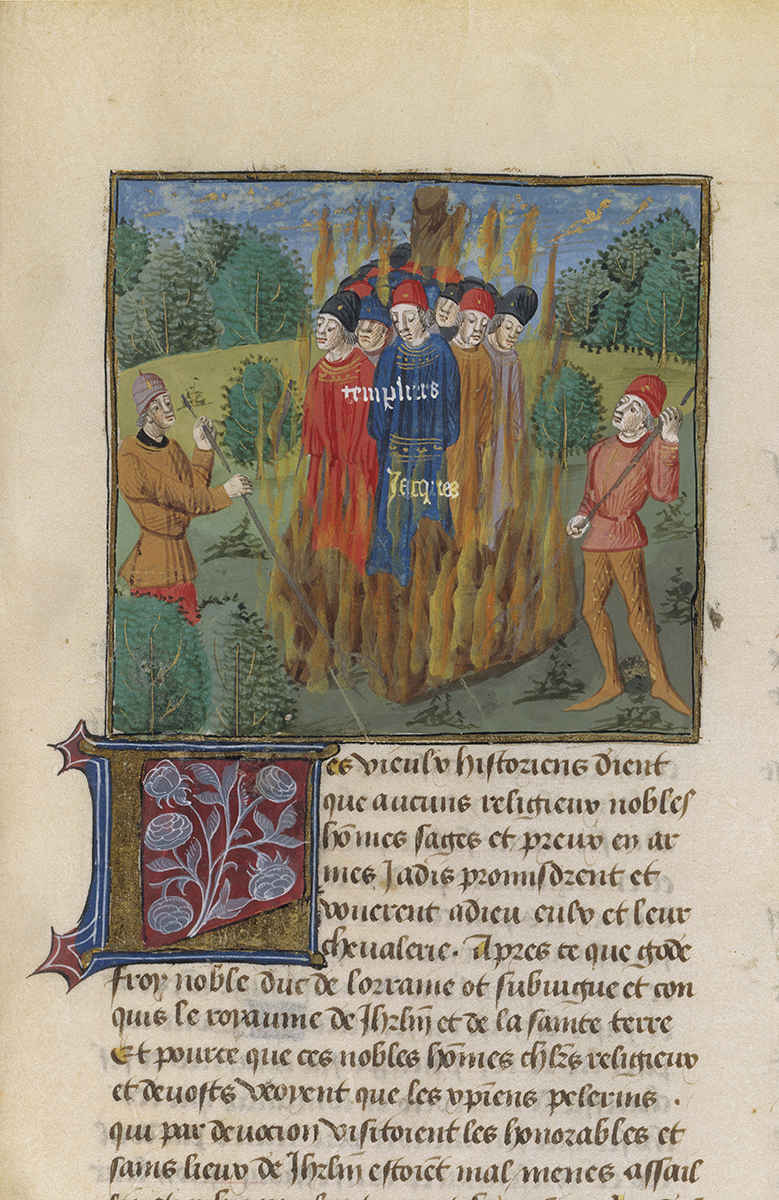 templiers
Jacques
Les vieulx historiens dient
que aucuns religieux nobles
hōmes sages et preux en ar
mes Jadis promisdrent et
vouerent adieu eulx et leur
chevalerie. Apres ce que gode
froy noble duc de lorraine ot subiugue et con
quis le royaume de Jhrlm̄ et de la sainte terre
Et pource que ces nobles hōmes chl̄rs religieux
et devosts veoyent que les xp̄iens pelerins .
qui par devocion visitoient les honorables et
sains lieux de Jhrlm̄ estoiēt mal menes assail